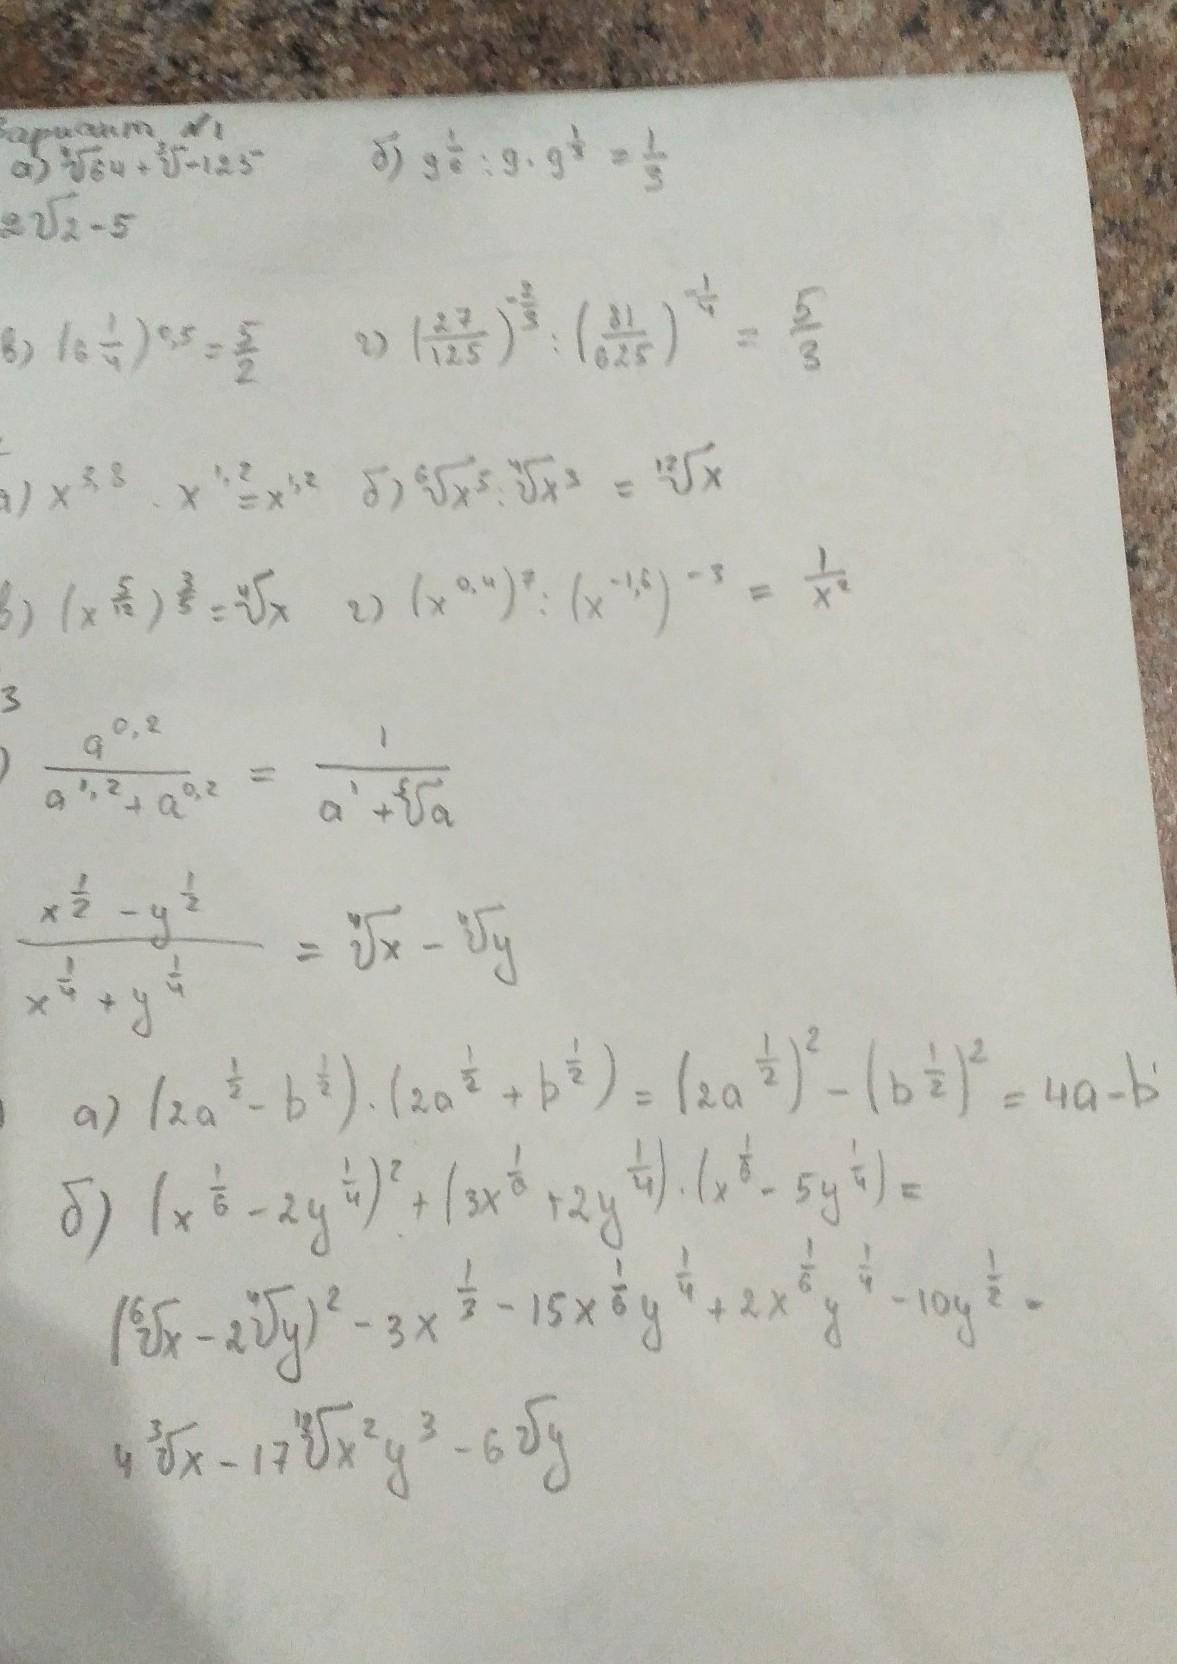 Вариант №1
а) ∜64 + ∛-125 б) 9^(1/6) : 9 · 9^(1/3) = 1/3
2√2 - 5
в) (6 1/4)^0,5 = 5/2 г) (27/125)^(-2/3) : (81/625)^(-1/4) = 5/3
а) x^3,8 · x^1,2 = x^1,2 б) ⁶√x^5 : ⁴√x^3 = ¹²√x
в) (x^(5/12))^(3/5) = ⁴√x г) (x^0,4)^7 : (x^-1,6)^-3 = 1/x^2
3
) a^0,2/(a^1,2 + a^0,2) = 1/(a^1 + ⁵√a)
(x^(1/2) - y^(1/2))/(x^(1/4) + y^(1/4)) = ⁴√x - ⁴√y
а) (2a^(1/2) - b^(1/2)) · (2a^(1/2) + b^(1/2)) = (2a^(1/2))^2 - (b^(1/2))^2 = 4a - b
б) (x^(1/6) - 2y^(1/4))^2 + (3x^(1/6) + 2y^(1/4)) · (x^(1/6) - 5y^(1/4)) =
(⁶√x - 2⁴√y)^2 - 3x^(1/3) - 15x^(1/6)y^(1/4) + 2x^(1/6)y^(1/4) - 10y^(1/2) -
4∛x - 17¹²√x^2y^3 - 6√y